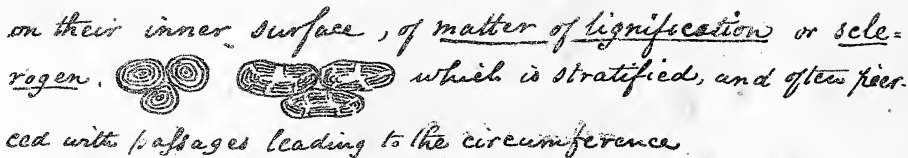 on their inner surface, of matter of lignification or scle=
rogen. which is stratified, and often pier-
ced with passages leading to the circumference